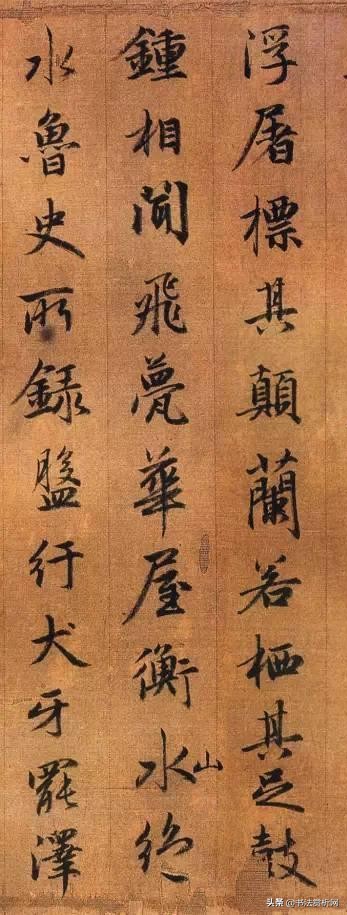 浮屠標其顛蘭若栖其足鼓
鍾相聞飛甍華屋衡水山絕
水魯史所録盤紆犬牙罷澤
头条 @书法赏析网